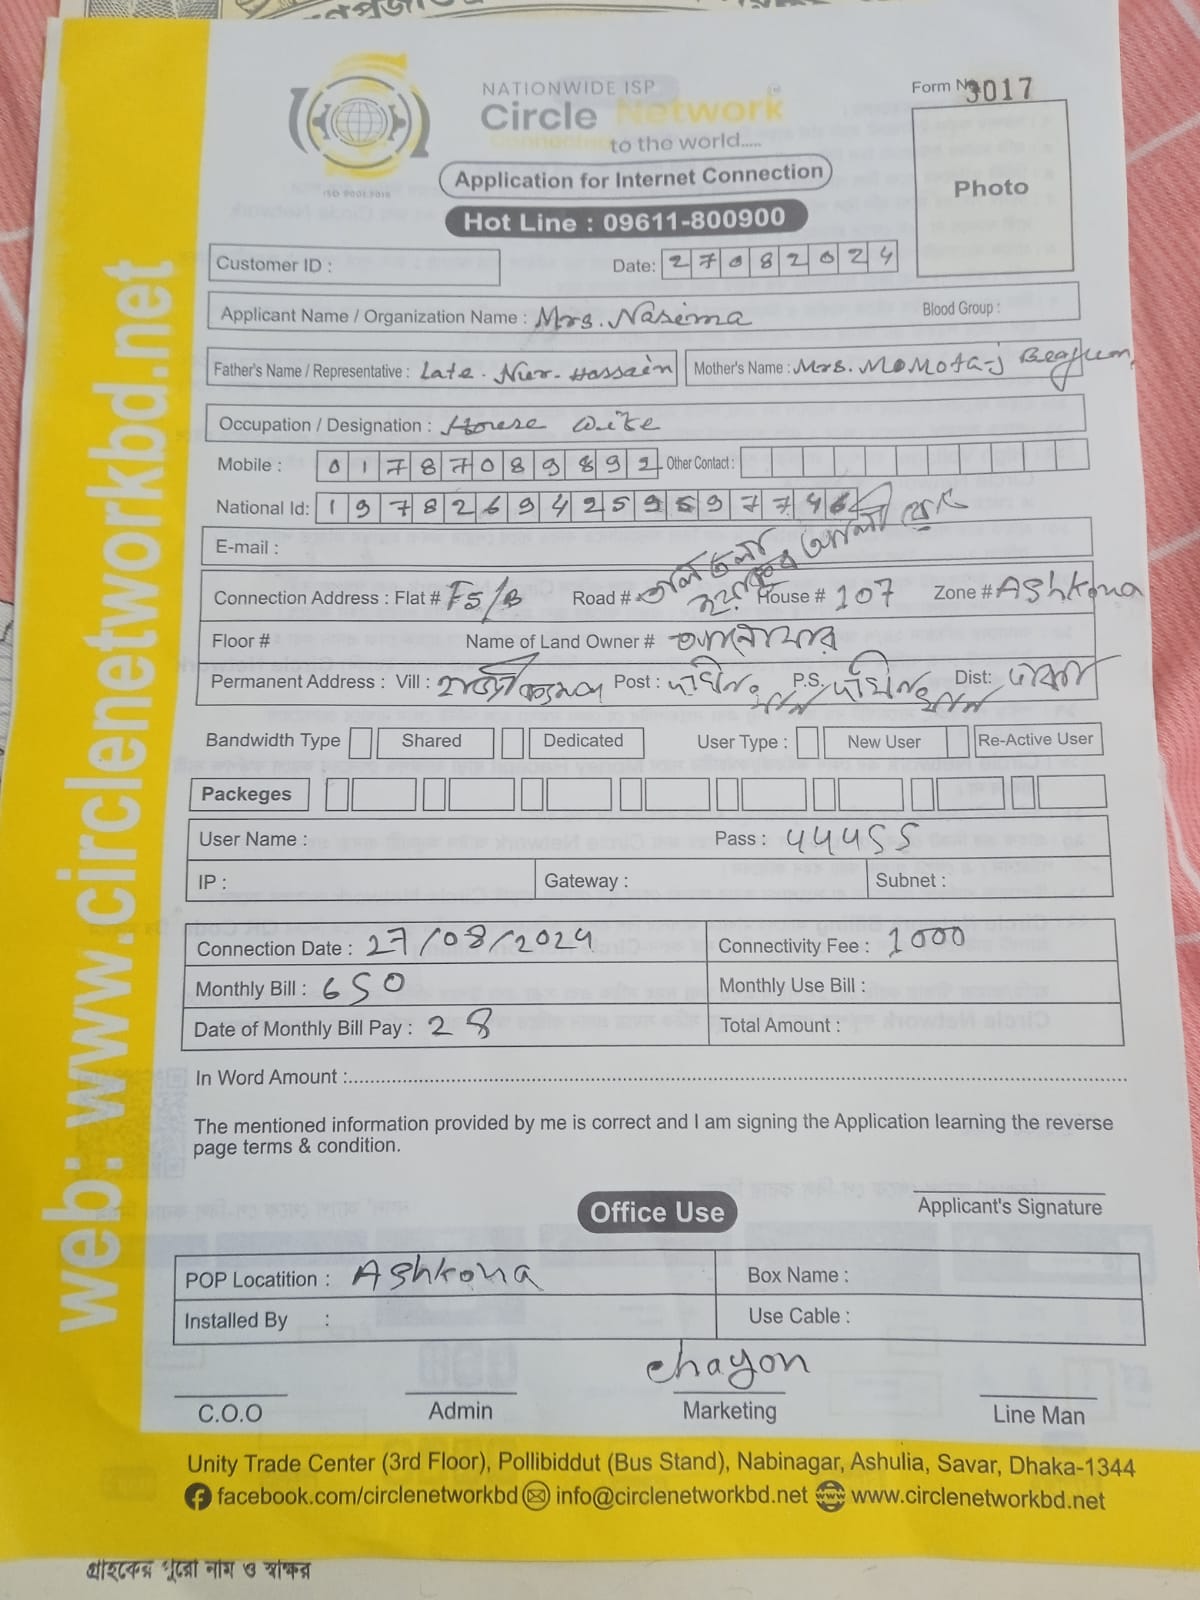 Form No 3017
NATIONWIDE ISP
Circle Network
Connecting to the world.....
ISO 9001:2015
Application for Internet Connection
Photo
Hot Line : 09611-800900
Customer ID :
Date: 27082024
Applicant Name / Organization Name : Mrs. Nasima
Blood Group :
Father's Name / Representative : Late. Nur. Hossain
Mother's Name : Mrs. MoMota-j
Occupation / Designation : House wife
Mobile : 01787089892 Other Contact :
National Id: 1978269425959774
E-mail :
Connection Address : Flat # F5/B Road # House # 107 Zone # Ashkona
Floor # Name of Land Owner # আনোয়ার
Permanent Address : Vill : Post : P.S. Dist: ঢাকা
Bandwidth Type Shared Dedicated User Type : New User Re-Active User
Packeges
User Name : Pass : 44455
IP : Gateway : Subnet :
Connection Date : 27/08/2024 Connectivity Fee : 1000
Monthly Bill : 650 Monthly Use Bill :
Date of Monthly Bill Pay : 28 Total Amount :
In Word Amount :
The mentioned information provided by me is correct and I am signing the Application learning the reverse
page terms & condition.
Applicant's Signature
Office Use
POP Locatition : Ashkona Box Name :
Installed By : Use Cable :
chayon
C.O.O Admin Marketing Line Man
Unity Trade Center (3rd Floor), Pollibiddut (Bus Stand), Nabinagar, Ashulia, Savar, Dhaka-1344
facebook.com/circlenetworkbd info@circlenetworkbd.net www.circlenetworkbd.net
web: www.circlenetworkbd.net
গ্রাহকের পুরো নাম ও স্বাক্ষর